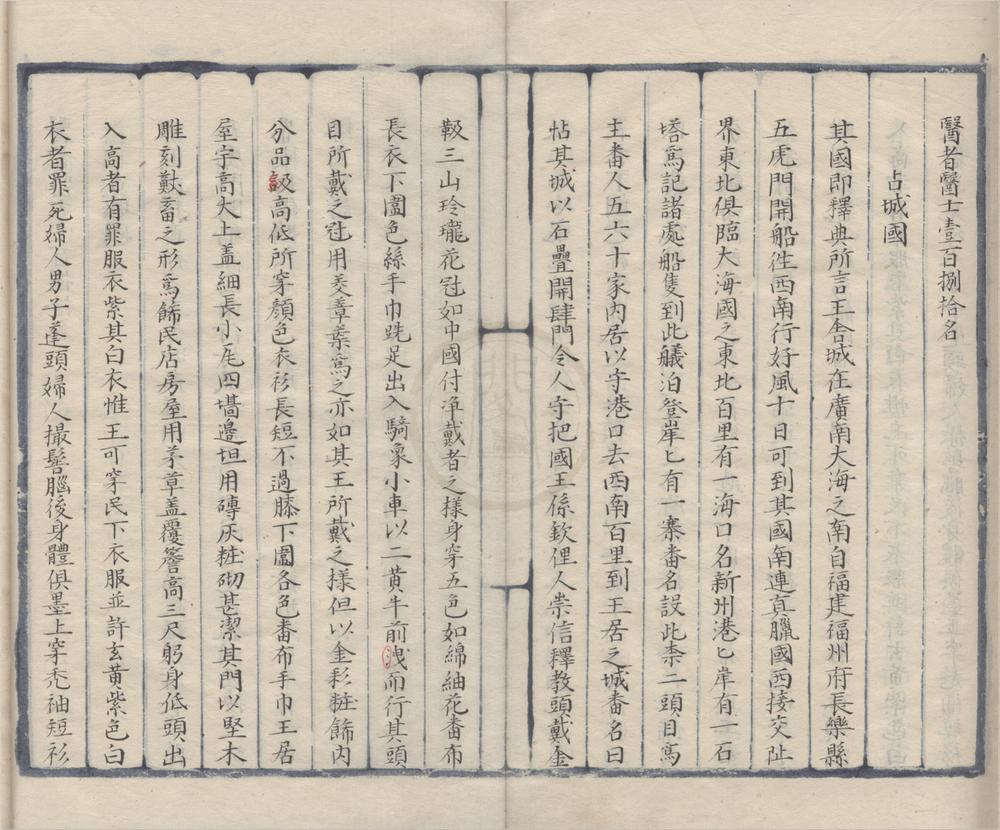 醫者醫士壹百捌拾名
占城國
其國即釋典所言王舍城在廣南大海之南自福建福州府長樂縣
五虎門開船徃西南行好風十日可到其國南連真臘國西接交阯
界東北俱臨大海國之東北百里有一海口名新州港匕岸有一石
塔爲記諸處船隻到此艤泊登岸匕有一寨番名設此柰二頭目爲
主番人五六十家内居以守港口去西南百里到王居之城番名曰
帖其城以石疊開肆門令人守把國王係欽俚人崇信釋教頭戴金
鞍三山玲瓏花冠如中國付净戴者之樣身穿五色如綿紬花番布
長衣下圍色絲手巾跣足出入騎象小車以二黄牛前洩而行其頭
目所戴之冠用茭葦葉爲之亦如其王所戴之樣但以金彩粧飾内
分品級高低所穿顔色衣衫長短不過膝下圍各色番布手巾王居
屋宇高大上盖細長小瓦四墻邉垣用磚灰粧砌甚潔其門以堅木
雕刻獸畜之形爲餙民店房屋用茅草盖覆簷高三尺躬身低頭出
入高者有罪服衣紫其白衣惟王可穿民下衣服並許玄黄紫色白
衣者罪死婦人男子蓬頭婦人撮髻腦後身體俱墨上穿禿袖短衫